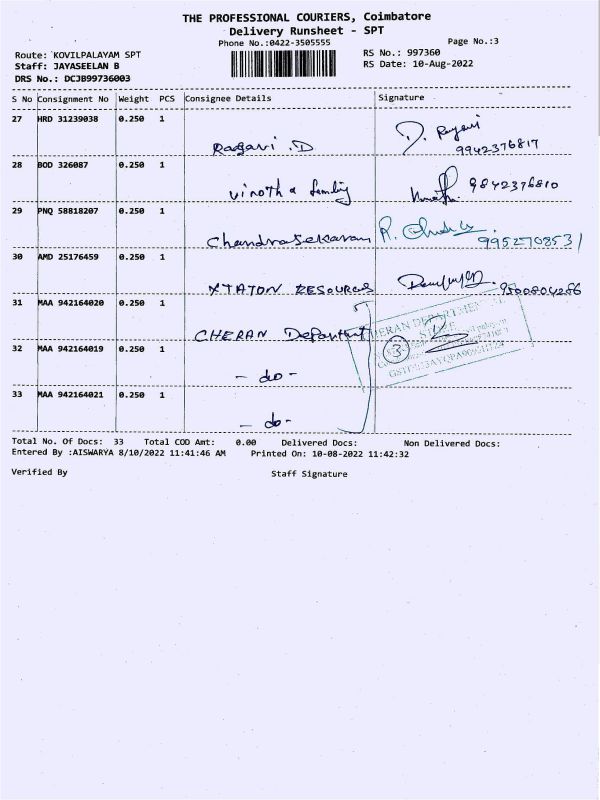 THE PROFESSIONAL COURIERS, Coimbatore
Delivery Runsheet - SPT
Phone No.:0422-3505555
Page No.:3
Route: KOVILPALAYAM SPT
RS No.: 997360
Staff: JAYASEELAN B
RS Date: 10-Aug-2022
DRS No.: DCJB99736003
S No Consignment No Weight PCS Consignee Details Signature
27 HRD 31239038 0.250 1
Ragavi .D D. Ragavi
9942376817
28 BOD 326087 0.250 1
vinoth & family 9842376810
29 PNQ 58818207 0.250 1
Chandrasekaran R.
9952708531
30 AMD 25176459 0.250 1
XTATON RESOURCES 9500804266
31 MAA 942164020 0.250 1
CHERAN Department
CHERAN DEPARTMENTAL
3
32 MAA 942164019 0.250 1
- do -
33 MAA 942164021 0.250 1
- do -
Total No. Of Docs: 33 Total COD Amt: 0.00 Delivered Docs: Non Delivered Docs:
Entered By :AISWARYA 8/10/2022 11:41:46 AM Printed On: 10-08-2022 11:42:32
Verified By Staff Signature